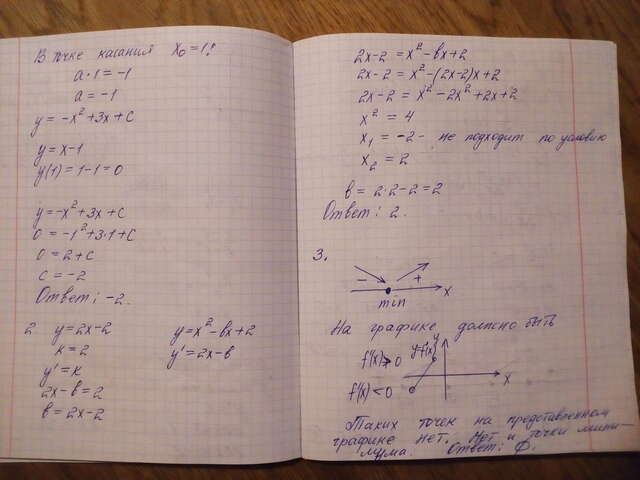 В точке касания x₀=1:
a·1=-1
a=-1
y=-x²+3x+c
y=x-1
y(1)=1-1=0
y=-x²+3x+c
0=-1²+3·1+c
0=2+c
c=-2
Ответ: -2.
2 y=2x-2 y=x²-bx+2
k=2 y'=2x-b
y'=k
2x-b=2
b=2x-2
2x-2=x²-bx+2
2x-2=x²-(2x-2)x+2
2x-2=x²-2x²+2x+2
x²=4
x₁=-2- не подходит по условию
x₂=2
b=2·2-2=2
Ответ: 2.
3.
- +
min x
На графике должно быть
f'(x)>0 y=f'(x) y
x
f'(x)<0
Таких точек на представленном
графике нет. Нет и точки мини-
мума. Ответ: Ø.